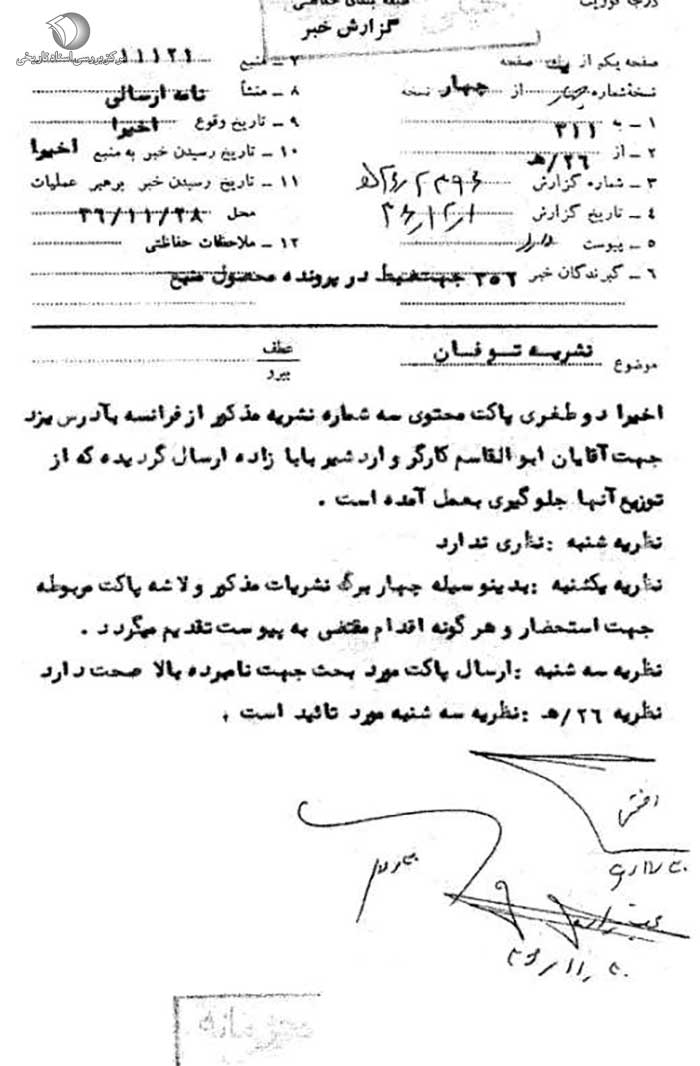 درجه فوریت
طبقه بندی حفاظتی
گزارش خبر
مرکز بررسی اسناد تاریخی
صفحه یکم از یک صفحه
نسخه شماره چهار از چهار نسخه
۱ ـ به ۳۱۱
۲ ـ از ۲۶/هـ
۳ ـ شماره گزارش
۴ ـ تاریخ گزارش
۵ ـ پیوست دارد
۶ ـ گیرندگان خبر ۳۵۶ جهت ضبط در پرونده محصول منبع
۷ ـ منبع ۱۱۱۲۱
۸ ـ منشأ نامه ارسالی
۹ ـ تاریخ وقوع اخیرا
۱۰ ـ تاریخ رسیدن خبر به منبع اخیرا
۱۱ ـ تاریخ رسیدن خبر برهبر عملیات
محل ۳۶/۱۱/۲۸
۱۲ ـ ملاحظات حفاظتی
موضوع نشریه توفان
عطف
پیرو
اخیرا دو طغری پاکت محتوی سه شماره نشریه مذکور از فرانسه بآدرس یزد
جهت آقایان ابوالقاسم کارگر و اردشیر بابا زاده ارسال گردیده که از
توزیع آنها جلوگیری بعمل آمده است .
نظریه شنبه : نظری ندارد
نظریه یکشنبه : بدینوسیله چهار برگ نشریات مذکور و لاشه پاکت مربوطه
جهت استحضار و هرگونه اقدام مقتضی به پیوست تقدیم میگردد .
نظریه سه شنبه : ارسال پاکت مورد بحث جهت نامبرده بالا صحت دارد
نظریه ۲۶/هـ : نظریه سه شنبه مورد تائید است .